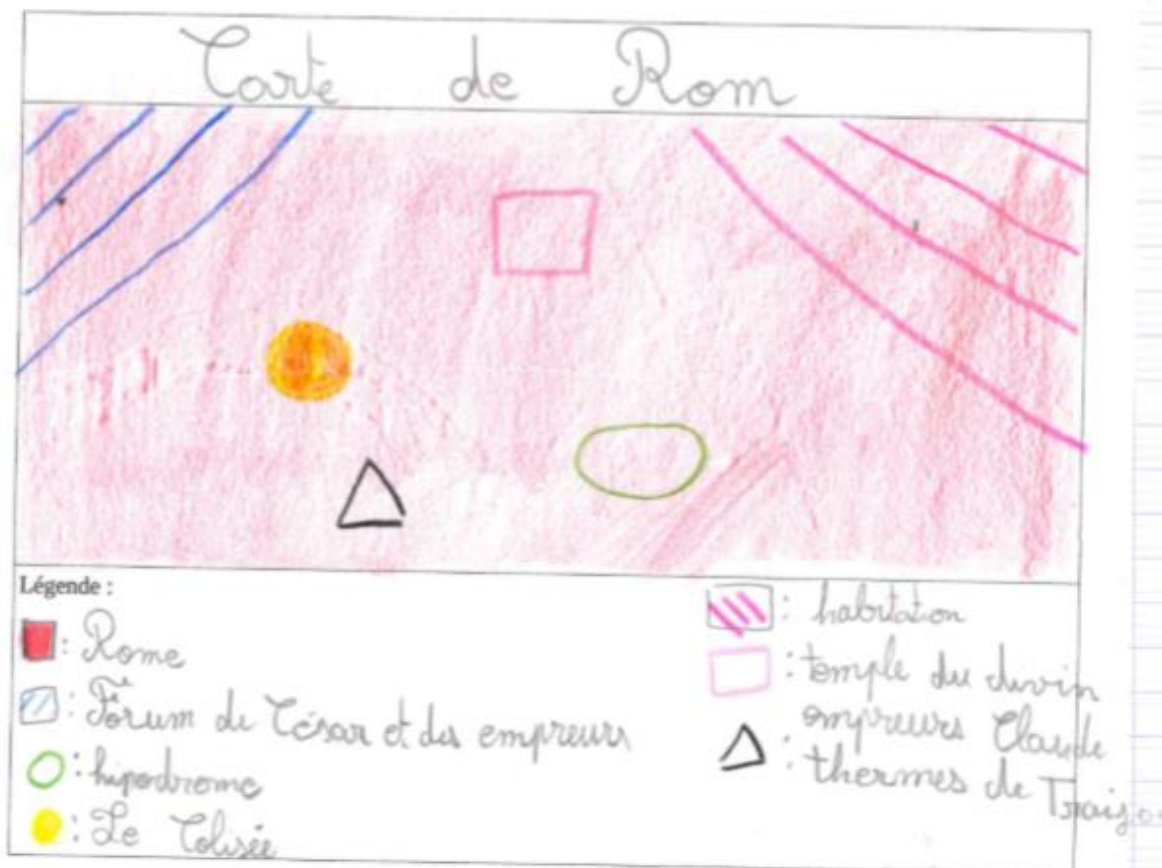 Carte de Rom
Légende :
: Rome
: Forum de César et des empreurs
: hipodrome
: Le Colisée
: habitation
: temple du divin
empreurs Claude
: thermes de Trajan